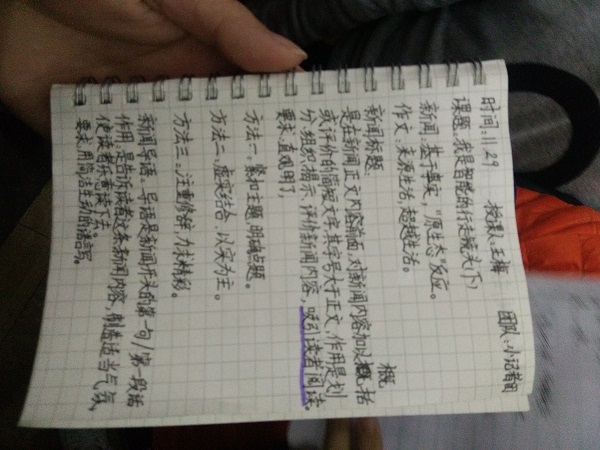 时间:11.29 授课人:王梅 团队:小记者团
课题:我是智能的行走镜头(下)
新闻:基于事实,“原生态”反应。
作文:来源生活,超越生活。
概
新闻标题:
是在新闻正文内容前面,对新闻内容加以概括
或评价的简短文字,其字号大于正文,作用是划
分、组织、揭示、评价新闻内容,吸引读者阅读。
要求:直观明了,
方法一、紧扣主题,明确点题。
方法二、虚实结合,以实为主。
方法三、注重修辞,力求精彩。
新闻导语:导语是新闻开头的第一句/第一段话
作用:是告诉读者这条新闻内容,制造适当气氛,
使读者乐意读下去。
要求:用简洁生动的话写。